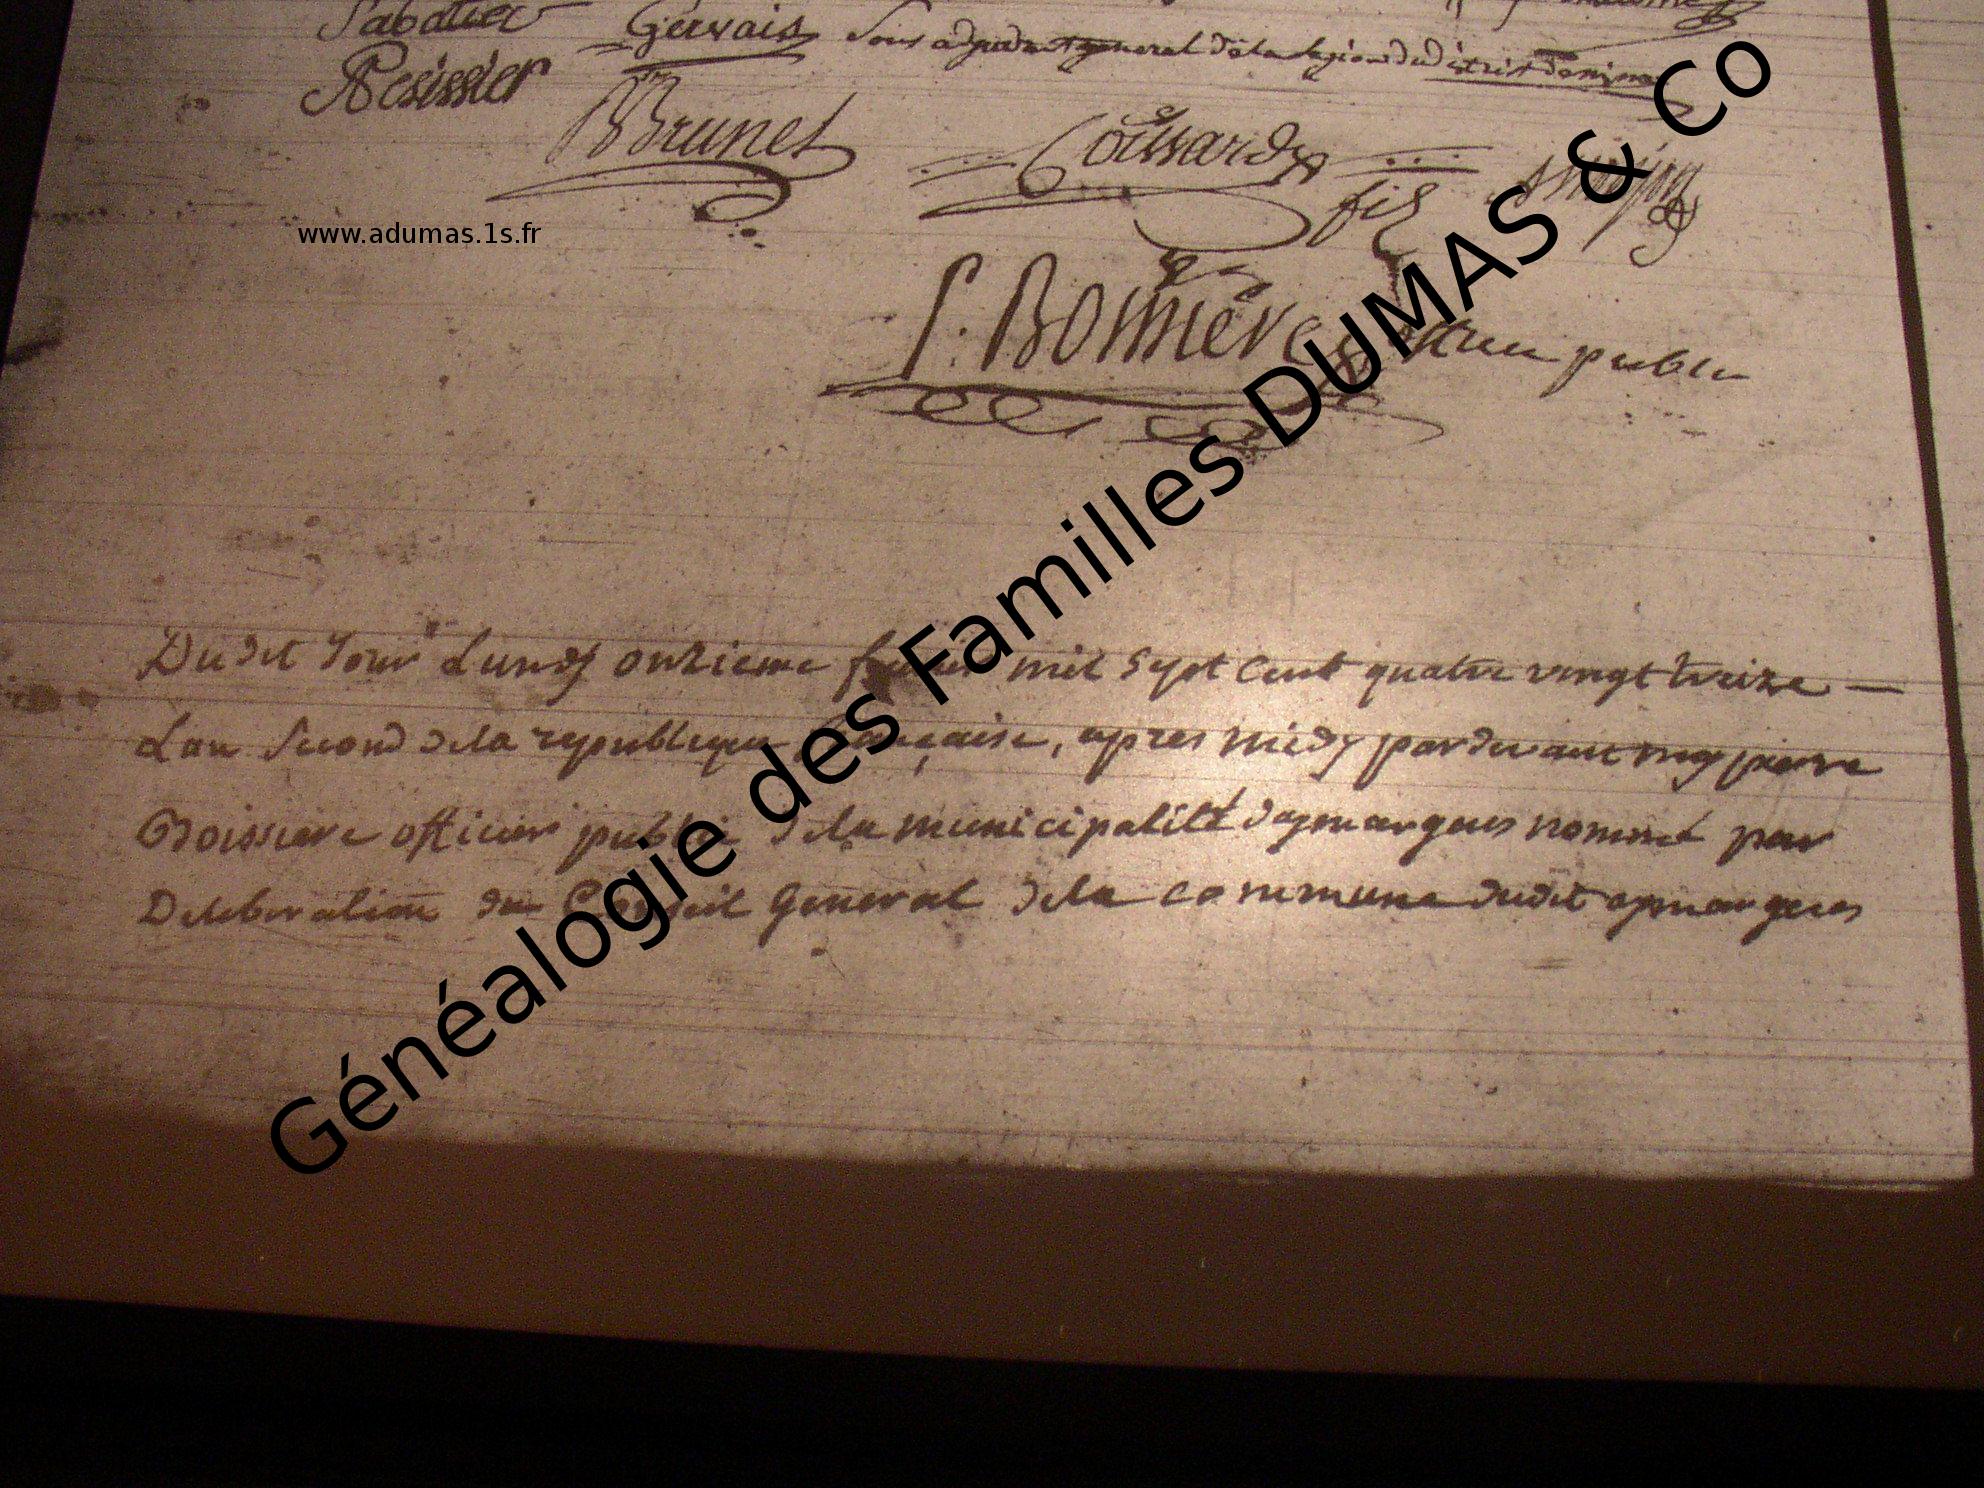 Sabatier
Gervais Sous adjudant general de la legion du district de nimes
Resissier
Brunet
Coussard
fils
www.adumas.1s.fr
P. Boissiere officier public
Du dit Jour Lundy onzieme mil Sept Cent quatre vingt treize —
L'an Second de la republique française, apres midy pardevant moy pierre
Boissiere officier public de la municipalité daymargues nommé par
Deliberation du Conseil General de la commune dudit aymargues
Généalogie des Familles DUMAS & Co